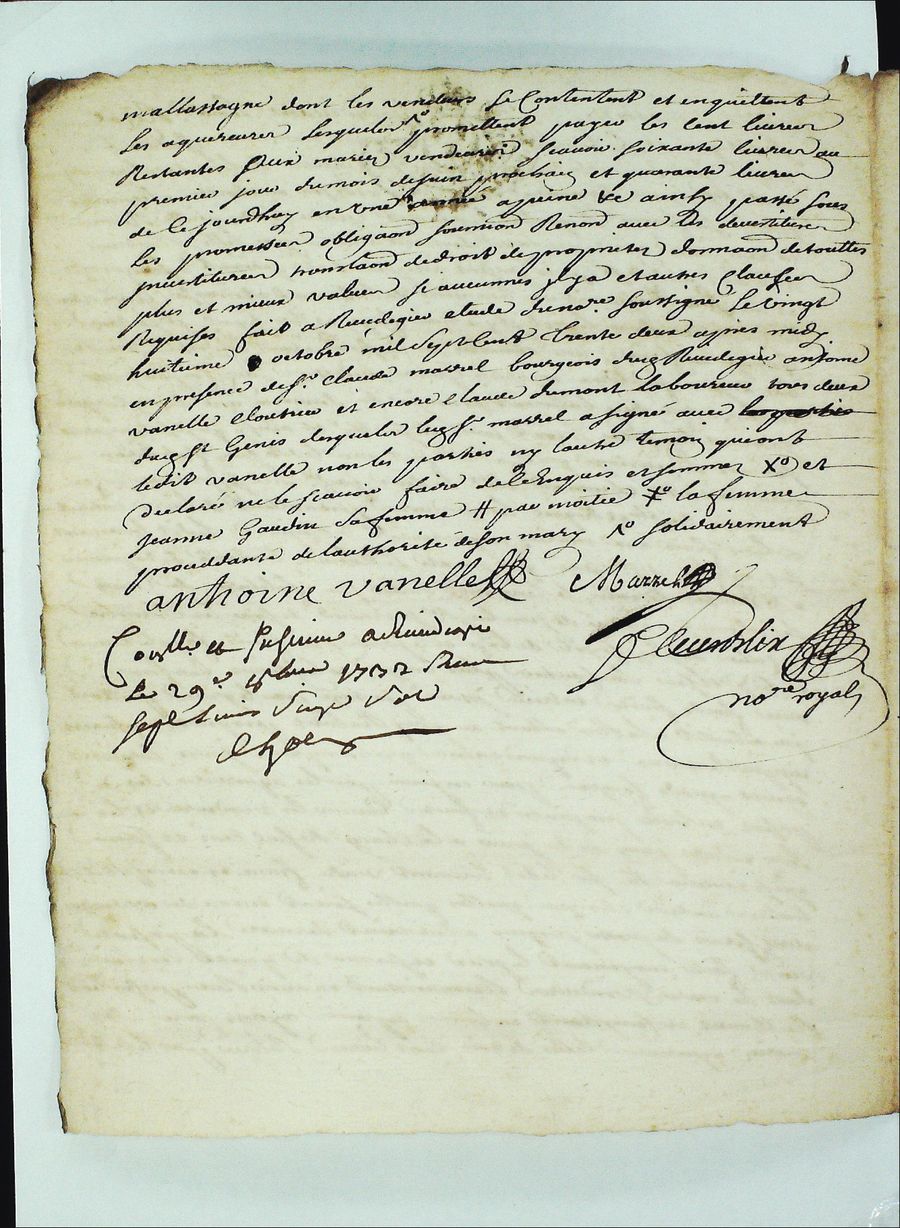 mallassagne dont les vendeurs se Contentent et enquittent
les aquereurer lesquelon 1° promettent payer les cent livrer
Restantes Aux mariez vendeurs scavoir soixante livrer au
premier jour dumois dejuin prochain et quarante livrer
de Ce jourdhuy en une année apeine &c ainsy passé sous
les promesser obligaon soumion Renon avec les devestiturer
investiturer translaon dedroit de proprieter donnaon detouttes
plus et mieux valuer si aucunnes jlya et autres Clauser
Requises fait a Rivedegier etude dunore soussigné Le vingt
huitieme octobre mil sept Cent trente deux apres midy
en presence de sr. Claude marrel bourgeois dud Rivedegier antoine
vanelle Cloutier et encore Claude dumont laboureur tous deux
dud st Genis desqueler led sr. marrel a signé avec
ledit vanelle non les parties ny lautre temoin quiont
declaré ne le scavoir faire de ce Enquis et sommer X° et
jeanne Gaudin sa femme # par moitie X° la femme
proceddante de lauthorité deson mary 1° solidairement
antoine vanelle Marrel
Conlle. et
Le 29e. 8bre 1732
sept livres
nore royal